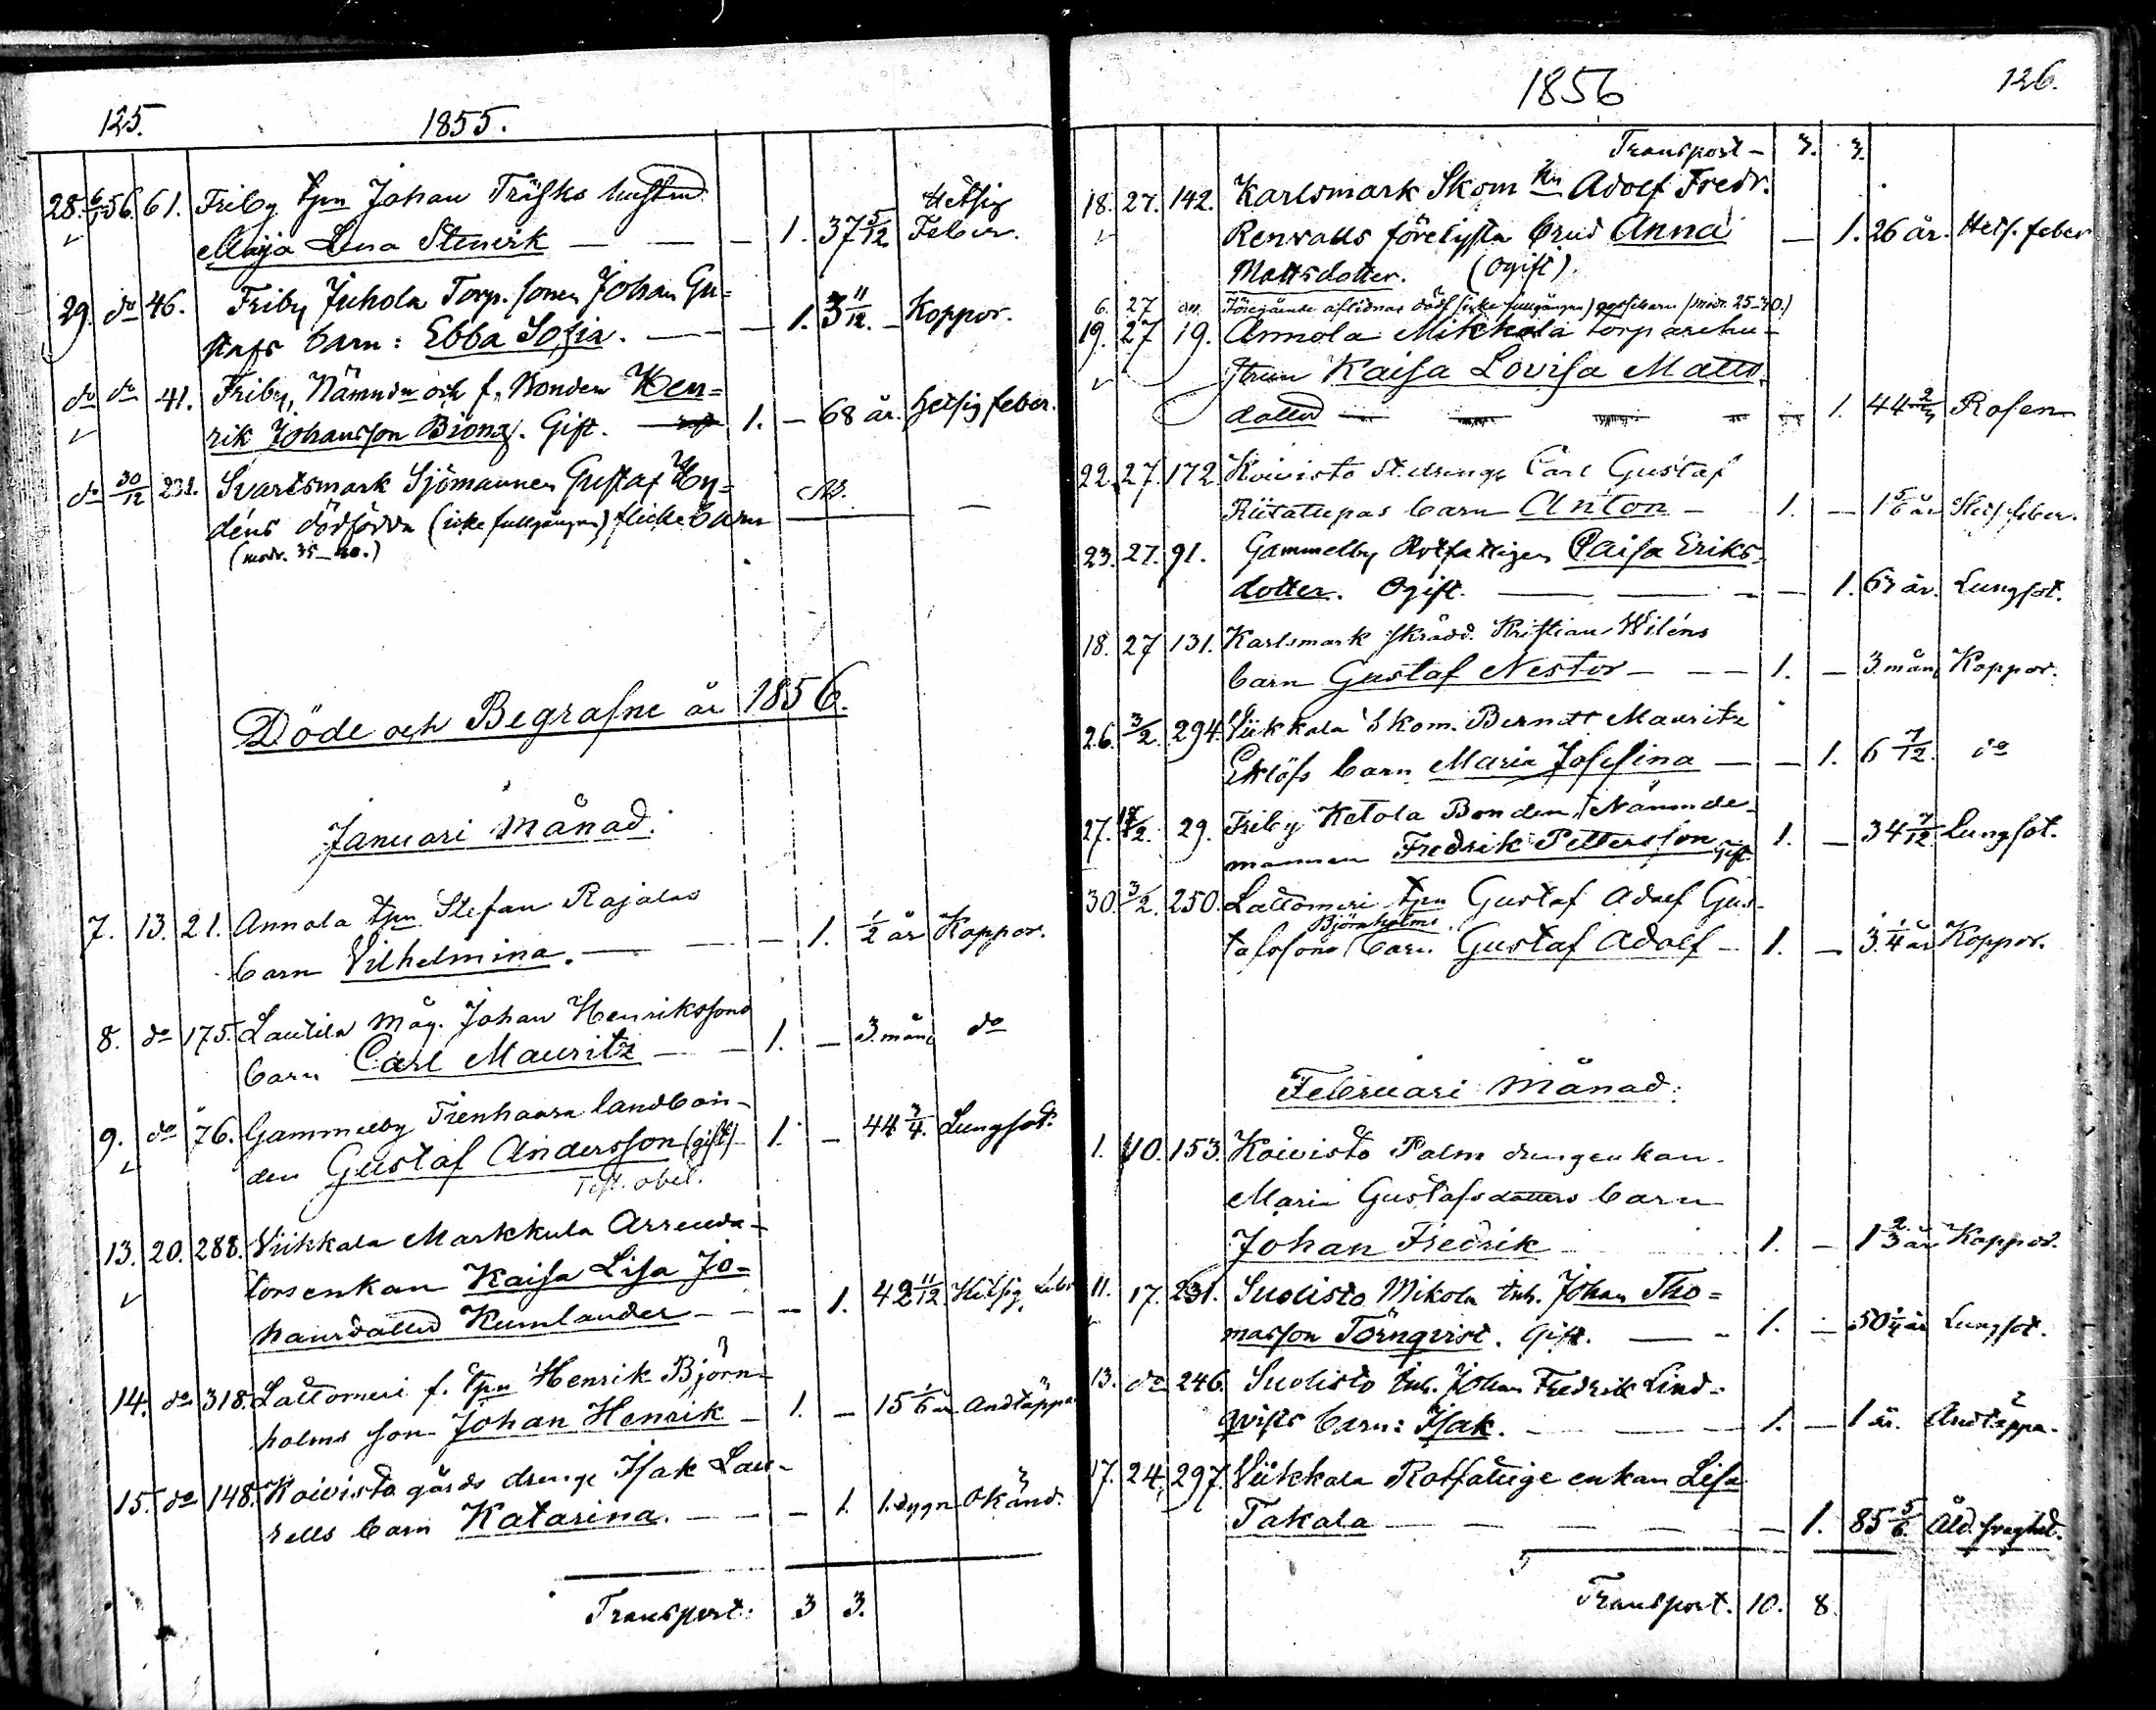 125. 1855.
28. 6/1 56. 61. Friby tpn Johan Träsks hustru
Maja Lena Stenerk — — — 1. 37 5/12 Hetsig Feber.
29. do 46. Friby Juhola Torp. sonen Johan Gu=
stafs barn: Ebba Sofia. — — 1. 3 11/12. Koppor.
do do 41. Friby, Nämndn och f. Bonden Hen=
rik Johansson Biong. Gift. 1. — 68 år. Hetsig feber.
do 30/12 231. Svartsmark Sjömannen Gustaf Hy=
déns dödfödda (icke fullgångna) flickebarn —
(modr. 35–40.)
Döde och Begrafne år 1856.
Januari Månad:
7. 13. 21. Annola tpn Stefan Rajalas
barn Vilhelmina. — — — 1. 1/2 år Koppor.
8. do 175. Lautila Måg. Johan Henrikssons
barn Carl Mauritz — — 1. — 3 mån do
9. do 76. Gammelby Tienhaara landbon-
den Gustaf Andersson (gift) 1. — 44 3/4. Lungsot.
Test. obel.
13. 20. 288. Viikkala Markkula Arrenda-
torsenkan Kaisa Lisa Jo=
hansdotter Kumlander — — — 1. 42 11/12. Hetsig feb
14. do 318. Lattomeri f. tpn Henrik Björn-
holms son Johan Henrik — 1. — 15 1/6 år Andtäppa
15. do 148. Koivisto gårds drengs Isak Lau-
rells barn Katarina. — — — 1. 1. dygn Okänd.
Transport: 3 3.
1856 126.
Transport — 3. 3.
18. 27. 142. Karlsmark Skom hn Adolf Fredr.
Renvalls förelysta brud Anna — 1. 26 år. Hets. feber
Mattsdotter. (Ogift).
6. 27 do. Föregående aflidnas dödf (icke fullgångna) gossebarn (modr. 25–30.)
19. 27 19. Annola Mikkola torparehu-
strun Kaisa Lovisa Matts-
dotter — — — — — 1. 44 Rosen
22. 27. 172. Koivisto St. drengs Carl Gustaf
Riitatupas barn Anton — 1. — 1 5/6 år Hets. feber.
23. 27. 91. Gammelby Rotfattigen Caisa Eriks-
dotter. Ogift. — — — — 1. 67 år. Lungsot.
18. 27 131. Karlsmark skrädd. Kristian Wiléns
barn Gustaf Nestor — — — 1. — 3 mån Koppor.
26. 3/2. 294. Viikkala Skom. Berndt Mauritz
Eklöfs barn Maria Josefina — — 1. 6 7/12. do
27. 29. Friby Ketola Bonden, Nämnde-
mannen Fredrik Pettersson Gift 1. — 34 7/12. Lungsot.
30. 3/2. 250. Lattomeri tpn Gustaf Adolf Gus-
Björnholms
tafssons barn Gustaf Adolf — 1. — 3 1/4 år Koppor.
Februari Månad:
1. 10. 153. Koivisto Palm drengenkan
Maria Gustafsdotters barn
Johan Fredrik 1. — 1 2/3 år Koppor.
11. 17. 231. Suolisto Mikola inh. Johan Tho=
masson Törnqvist. Gift. — — 1. — 50 1/4 år Lungsot.
13. do 246. Suolisto Inh. Johan Fredrik Lind-
qvists barn: Isak. — — — 1. — 1 år. Andtäppa.
17. 24. 297. Viikkala Rotfattige enkan Lisa
Takala — — — — — — 1. 85 5/6. Åld. svaghet.
Transport. 10. 8.